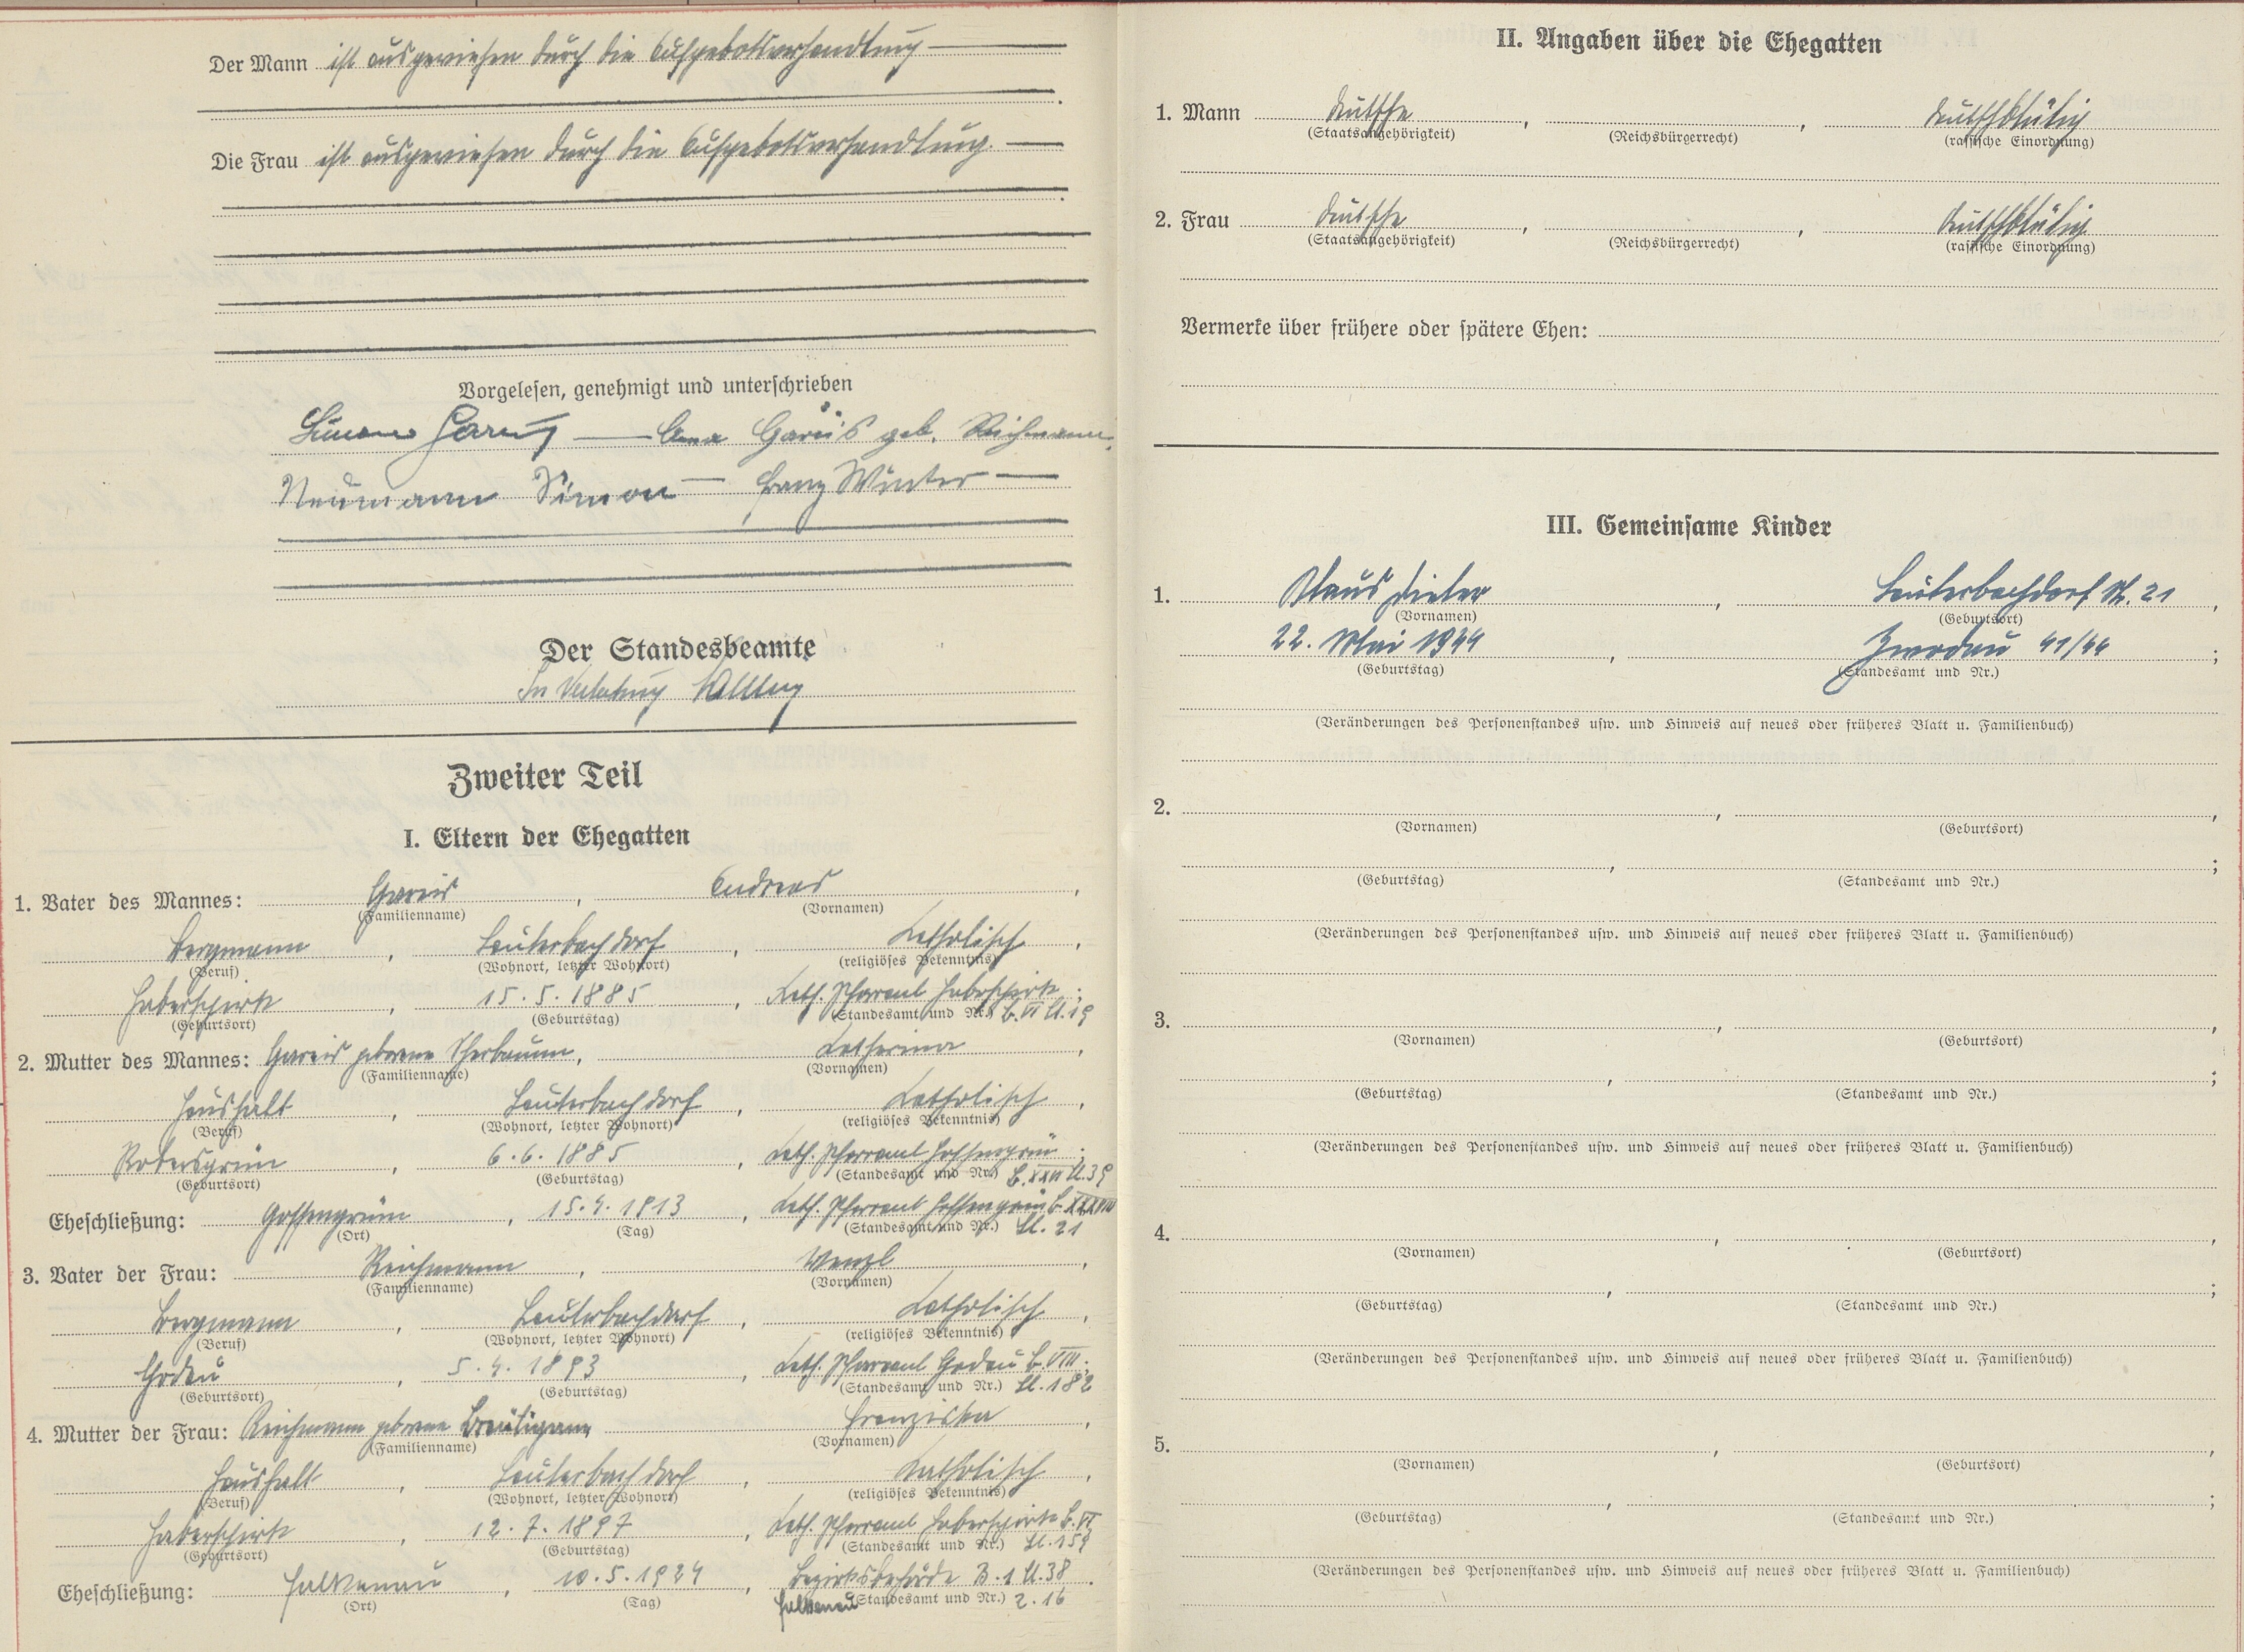 Der Mann ist ausgewiesen durch die Aufgebotsverhandlung
Die Frau ist ausgewiesen durch die Aufgebotsverhandlung.
Vorgelesen, genehmigt und unterschrieben
Anna Gareis geb. Reichmann.
Neumann Simon Franz Winter
Der Standesbeamte
In Vertretung
Zweiter Teil
I. Eltern der Ehegatten
1. Vater des Mannes: Gareis, Andreas,
(Familienname) (Vornamen)
Bergmann, Lauterbachdorf, katholisch,
(Beruf) (Wohnort, letzter Wohnort) (religiöses Bekenntnis)
Haberspirk, 15.5.1885, kath. Pfarramt Haberspirk;
(Geburtsort) (Geburtstag) (Standesamt und Nr.) B. VI Bl. 19
2. Mutter des Mannes: Gareis geborene Scherbaum, Katharina,
(Familienname) (Vornamen)
Haushalt, Lauterbachdorf, katholisch,
(Beruf) (Wohnort, letzter Wohnort) (religiöses Bekenntnis)
Robersgrün, 6.6.1885, kath. Pfarramt Gossengrün;
(Geburtsort) (Geburtstag) (Standesamt und Nr.) B. XXVI Bl. 39
Eheschließung: Gossengrün, 15.4.1913, kath. Pfarramt Gossengrün B.
(Ort) (Tag) (Standesamt und Nr.) Bl. 21
3. Vater der Frau: Reichmann, Wenzl,
(Familienname) (Vornamen)
Bergmann, Lauterbachdorf, katholisch,
(Beruf) (Wohnort, letzter Wohnort) (religiöses Bekenntnis)
Chodau, 5.4.1893, kath. Pfarramt Chodau B. VIII;
(Geburtsort) (Geburtstag) (Standesamt und Nr.) Bl. 182
4. Mutter der Frau: Reichmann geborene Bräutigam, Franziska,
(Familienname) (Vornamen)
Haushalt, Lauterbachdorf, katholisch,
(Beruf) (Wohnort, letzter Wohnort) (religiöses Bekenntnis)
Haberspirk, 12.7.1897, kath. Pfarramt Haberspirk B. VI
(Geburtsort) (Geburtstag) (Standesamt und Nr.) Bl. 159
Eheschließung: Falkenau, 10.5.1924, Bezirksbehörde B. 1 Bl. 38.
(Ort) (Tag) Falkenau (Standesamt und Nr.) Z. 16
II. Angaben über die Ehegatten
1. Mann deutsche, , deutschblütig
(Staatsangehörigkeit) (Reichsbürgerrecht) (rassische Einordnung)
2. Frau deutsche, , deutschblütig
(Staatsangehörigkeit) (Reichsbürgerrecht) (rassische Einordnung)
Vermerke über frühere oder spätere Ehen:
III. Gemeinsame Kinder
1. Klaus Dieter, Lauterbachdorf Nr. 21,
(Vornamen) (Geburtsort)
22. Mai 1944, Zwodau 41/44;
(Geburtstag) (Standesamt und Nr.)
(Veränderungen des Personenstandes usw. und Hinweis auf neues oder früheres Blatt u. Familienbuch)
2. , ,
(Vornamen) (Geburtsort)
, ;
(Geburtstag) (Standesamt und Nr.)
(Veränderungen des Personenstandes usw. und Hinweis auf neues oder früheres Blatt u. Familienbuch)
3. , ,
(Vornamen) (Geburtsort)
, ;
(Geburtstag) (Standesamt und Nr.)
(Veränderungen des Personenstandes usw. und Hinweis auf neues oder früheres Blatt u. Familienbuch)
4. , ,
(Vornamen) (Geburtsort)
, ;
(Geburtstag) (Standesamt und Nr.)
(Veränderungen des Personenstandes usw. und Hinweis auf neues oder früheres Blatt u. Familienbuch)
5. , ,
(Vornamen) (Geburtsort)
, ;
(Geburtstag) (Standesamt und Nr.)
(Veränderungen des Personenstandes usw. und Hinweis auf neues oder früheres Blatt u. Familienbuch)